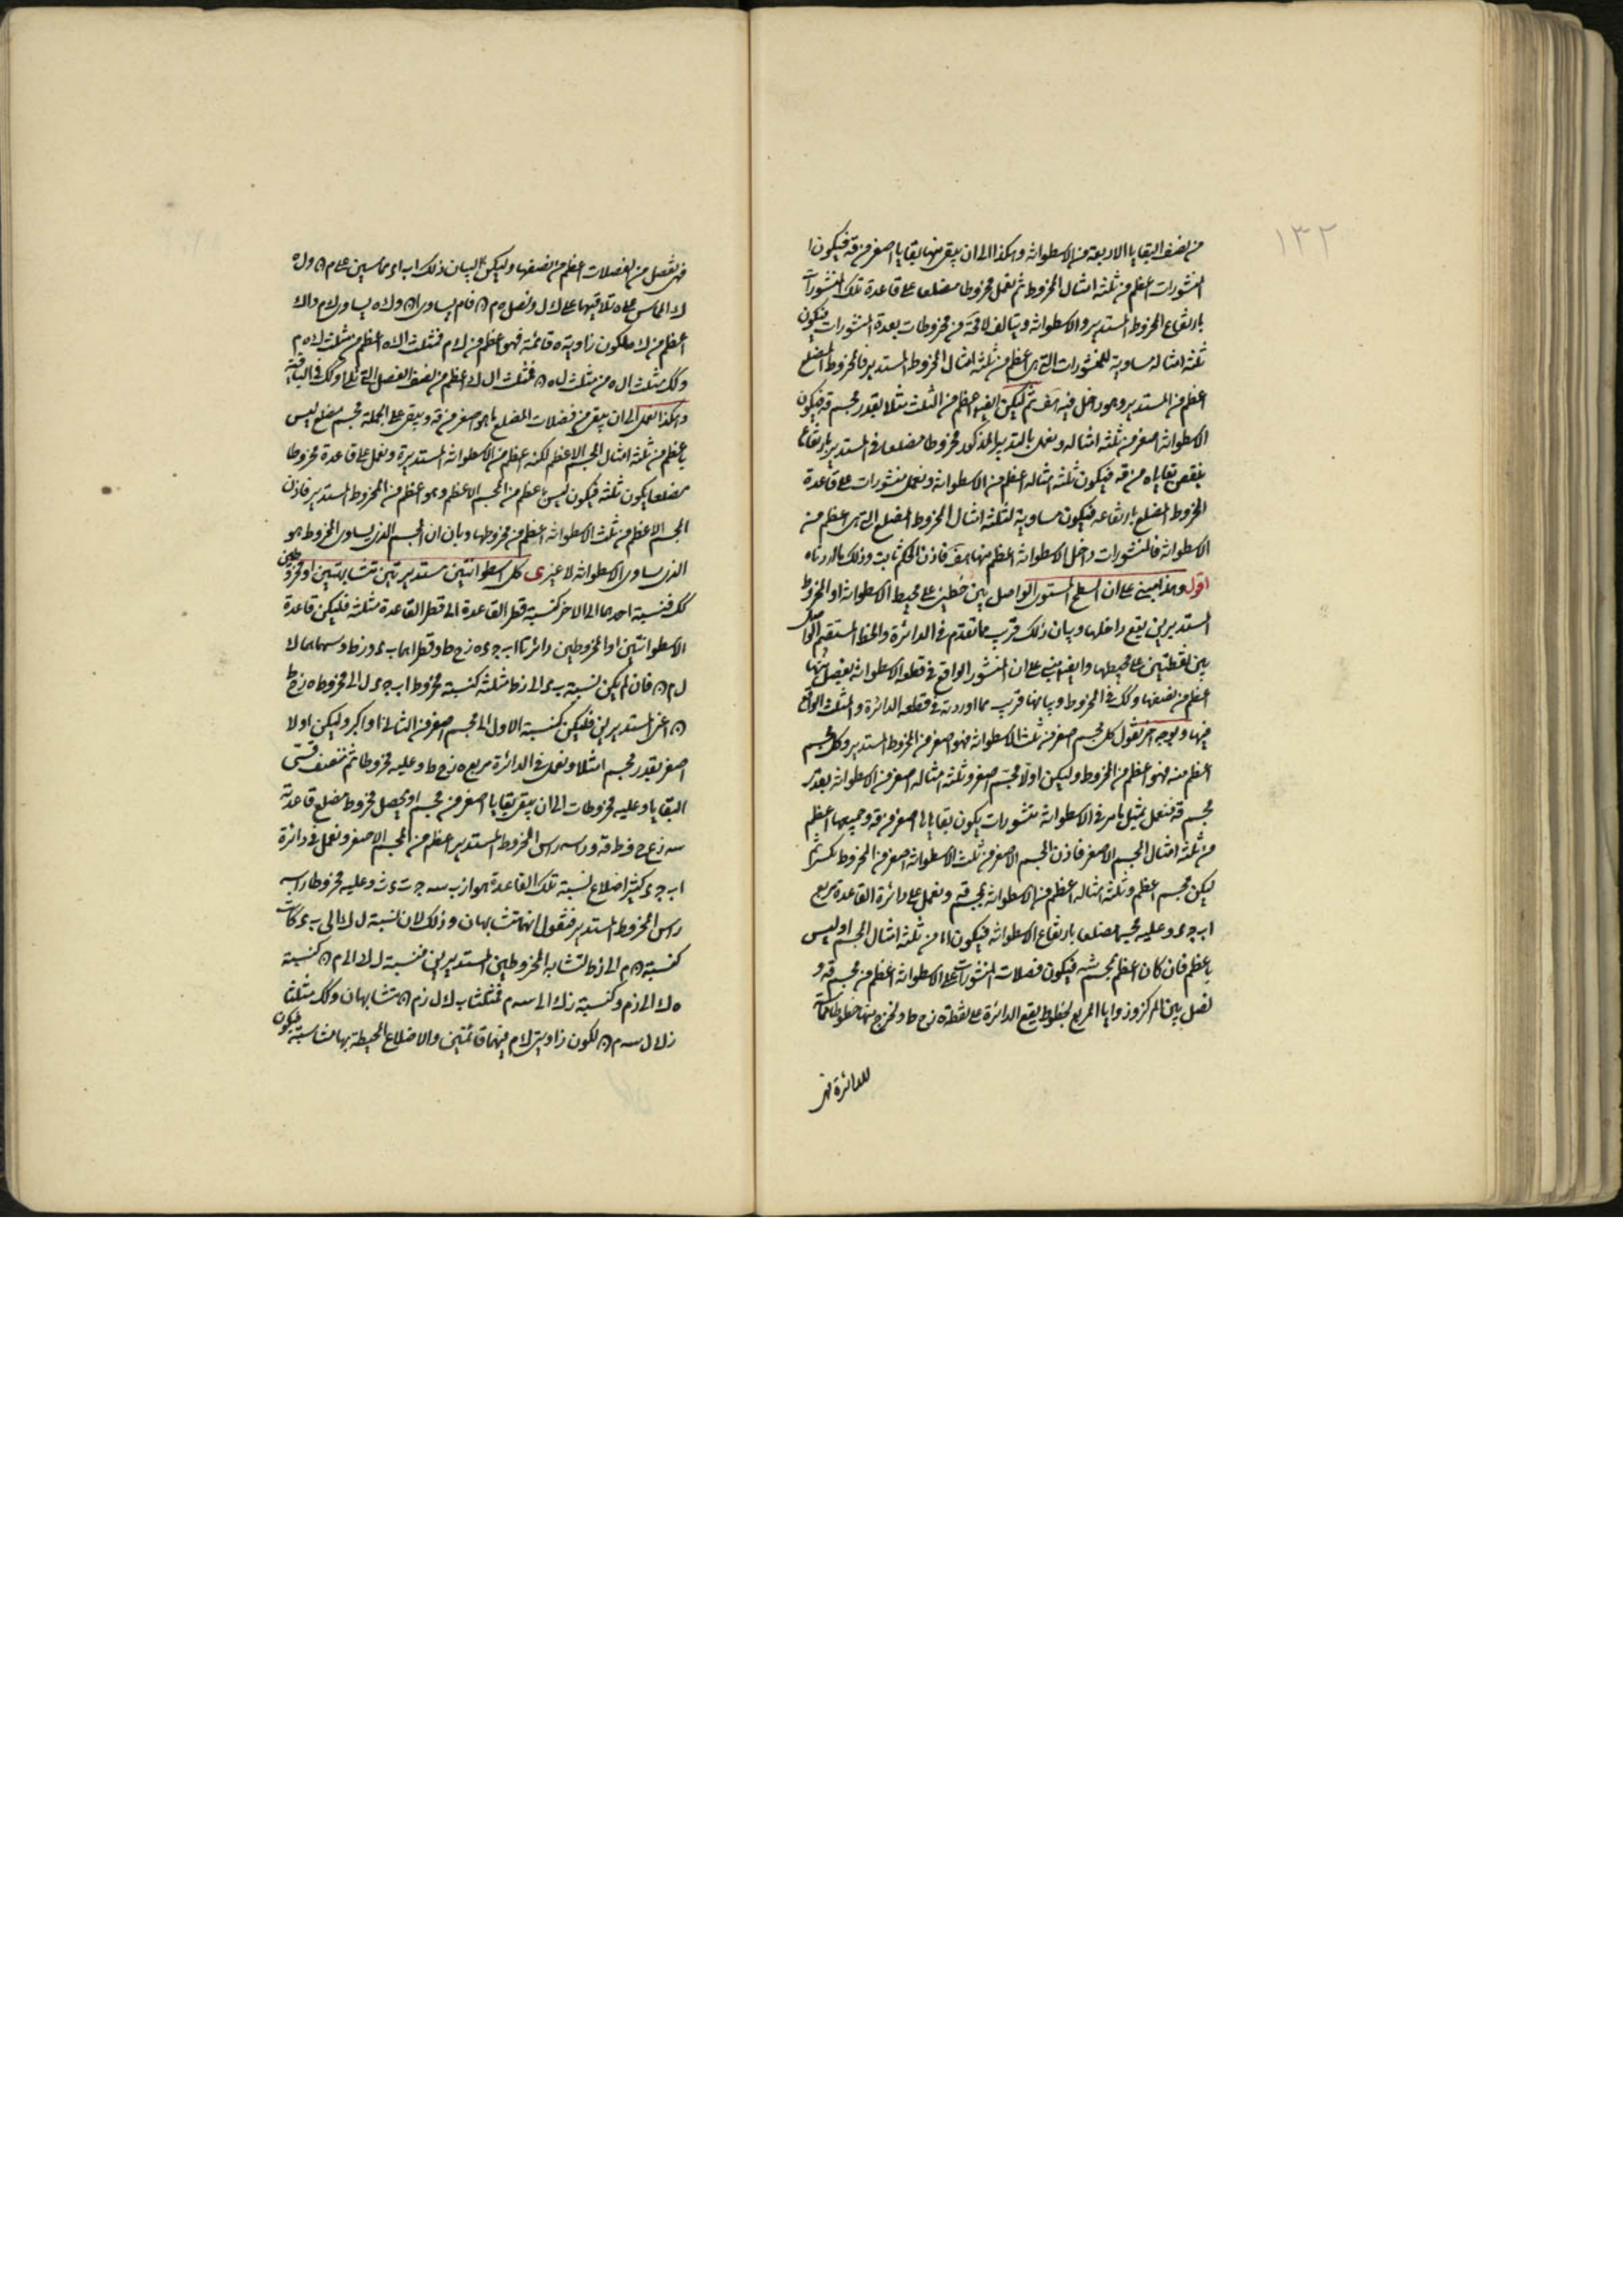 ١٣٢
من نصف البقايا الاربعة من الاسطوانة وهكذا الى ان يبقى منها بقايا اصغر من قه فيكون
المنشورات اعظم من ثلثة امثال المخروط ثم نعمل مخروطا مضلعا على قاعدة تلك المنشورات
بارتفاع المخروط المستدير والاسطوانة ويتالف لا محة من مخروطات بعدة المنشورات فيكون
ثلثة امثاله مساوية للمنشورات التى هى اعظم من ثلثة امثال المخروط المستدير فالمخروط المضلع
اعظم من المستدير وهو داخل فيه هف ثم ليكن ايضا اعظم من الثلث مثلا بقدر مجسم قه فيكون
الاسطوانة اصغر من ثلثة امثاله ونعمل بالتدبير المذكور مخروطا مضلعا فى المستدير بارتفاعه
ينقص بقاياه من قه فيكون ثلثة امثاله اعظم من الاسطوانة ونعمل منشورات على قاعدة
المخروط المضلع بارتفاعه فيكون مساوية لثلثة امثال المخروط المضلع التى هى اعظم من
الاسطوانة فالمنشورات داخل الاسطوانة اعظم منها هف فاذن الحكم ثابت وذلك ما اردناه
اقول وهذا مبنى على ان السطح المستوى الواصل بين خطين على محيط الاسطوانة او المخروط
المستديرين يقع داخلها وبيان ذلك قريب مما تقدم فى الدائرة والخط المستقيم الواصل
بين نقطتين على محيطها وايضا مبنى على ان المنشور الواقع فى قطعة الاسطوانة يفصل منها
اعظم من نصفها وكك فى المخروط وبيانها قريب مما اوردته فى قطعة الدائرة والمثلث الواقع
فيها وبوجه اخر نقول كل مجسم اصغر من ثلث الاسطوانة فهو اصغر من المخروط المستدير وكل مجسم
اعظم منه فهو اعظم من المخروط وليكن اولا مجسم اصغر وثلثة امثاله اصغر من الاسطوانة بقدر
مجسم قه فنعمل بمثل ما مر فى الاسطوانة منشورات يكون بقاياها اصغر من قه وجميعها اعظم
من ثلثة امثال المجسم الاصغر فاذن المجسم الاصغر من ثلث الاسطوانة اصغر من المخروط ثم
ليكن مجسم اعظم وثلثة امثاله اعظم من الاسطوانة بمجسم قه ونعمل على دائرة القاعدة مربع
اب جء وعليه مجسما مضلعا بارتفاع الاسطوانة فيكون اما من ثلثة امثال المجسم او ليس
باعظم فان كان اعظم بمجسم شه فيكون فضلات المنشورات على الاسطوانة اعظم من مجسم قه و
نصل بين المركز وزوايا المربع بخطوط يقع الدائرة على نقطة ه زح ط ونخرج منها خطوطا مماسة
للدائرة فهى
فهى تفصل من الفضلات اعظم من نصفها وليكن لبيان ذلك اب اء مماسين على م ن ول ه
ك المماس على ه تلاقيها على ك ل ونصل ه م ن فام يساوى ان ول ه يساوى ل م واك
اعظم من ك ه لكون زاوية ه قائمة فهو اعظم من ك م فمثلث اك ه اعظم من مثلث ك ه م
وكك مثلث ال ه من مثلث ل ه ن فمثلث ال ك اعظم من نصف الفصل التى تلى ا وكك فى الباقية
وهكذا العمل الى ان يبقى من فضلات المضلع ما هو اصغر من قه ويبقى على الجملة مجسم مضلع ليس
باعظم من ثلثة امثال المجسم الاعظم لكنه اعظم من الاسطوانة المستديرة ونعمل على قاعدته مخروطا
مضلعا يكون ثلثه فيكون ليس باعظم من المجسم الاعظم وهو اعظم من المخروط المستدير فاذن
المجسم الاعظم من ثلث الاسطوانة اعظم من مخروطها وبان ان المجسم الذى يساوى المخروط هو
الذى يساوى الاسطوانة لا غير ى كل اسطوانتين مستديرتين متشابهتين او مخروطين
كك فنسبة احدهما الى الاخر كنسبة قطر القاعدة الى قطر القاعدة مثلثة فليكن قاعدة
الاسطوانتين او المخروطين دائرتا اب جء ه زح ط وقطراهما بء وزط وسهماهما ك
ل م ن فان لم يكن نسبة بء الى زط مثلثة كنسبة مخروط اب جء ل الى مخروط ه زح ط
ن اعنى المستديرين فليكن كنسبة الاول الى مجسم اصغر من الثانى او اكبر وليكن اولا
اصغر بقدر مجسم ا مثلا ونعمل فى الدائرة مربع ه زح ط وعليه مخروطا ثم ننصف قسى
البقايا وعليه مخروطات الى ان يبقى بقايا اصغر من مجسم ا ويحصل مخروط مضلع قاعدته
سه زع ح فط قه وراسه راس المخروط المستدير اعظم من المجسم الاصغر ونعمل فى دائرة
اب جء كثير اضلاع لنسبة تلك القاعدة هو ازب سه جت ءث وعليه مخروطا راسه
راس المخروط المستدير فنقول انهما متشابهان وذلك لان نسبة ل ك الى بء كانت
كنسبة ن م الى زط لتشابه المخروطين المستديرين فنسبة ل ك الى م ن كنسبة
ه ك الى زم وكنسبة زك الى سه م فمثلثا ب ك ل زم ن متشابهان وكك مثلثا
زك ل سه م ن لكون زاويتى ك م فيهما قائمتين والاضلاع المحيطة بهما متناسبة فيكون